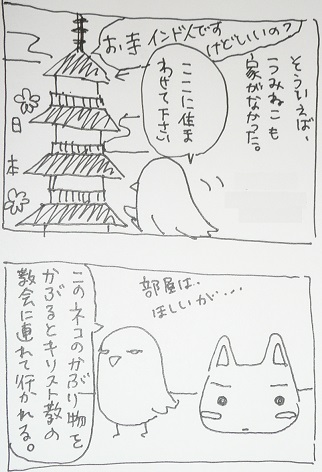 そういえば、
うみねこも
家がなかった。
インド人です
けどいいの?
お寺
ここに住ま
わせて下さい
日本
部屋は‥
ほしいが‥‥
このネコのかぶり物を
かぶるとキリスト教の
教会に連れて行かれる。